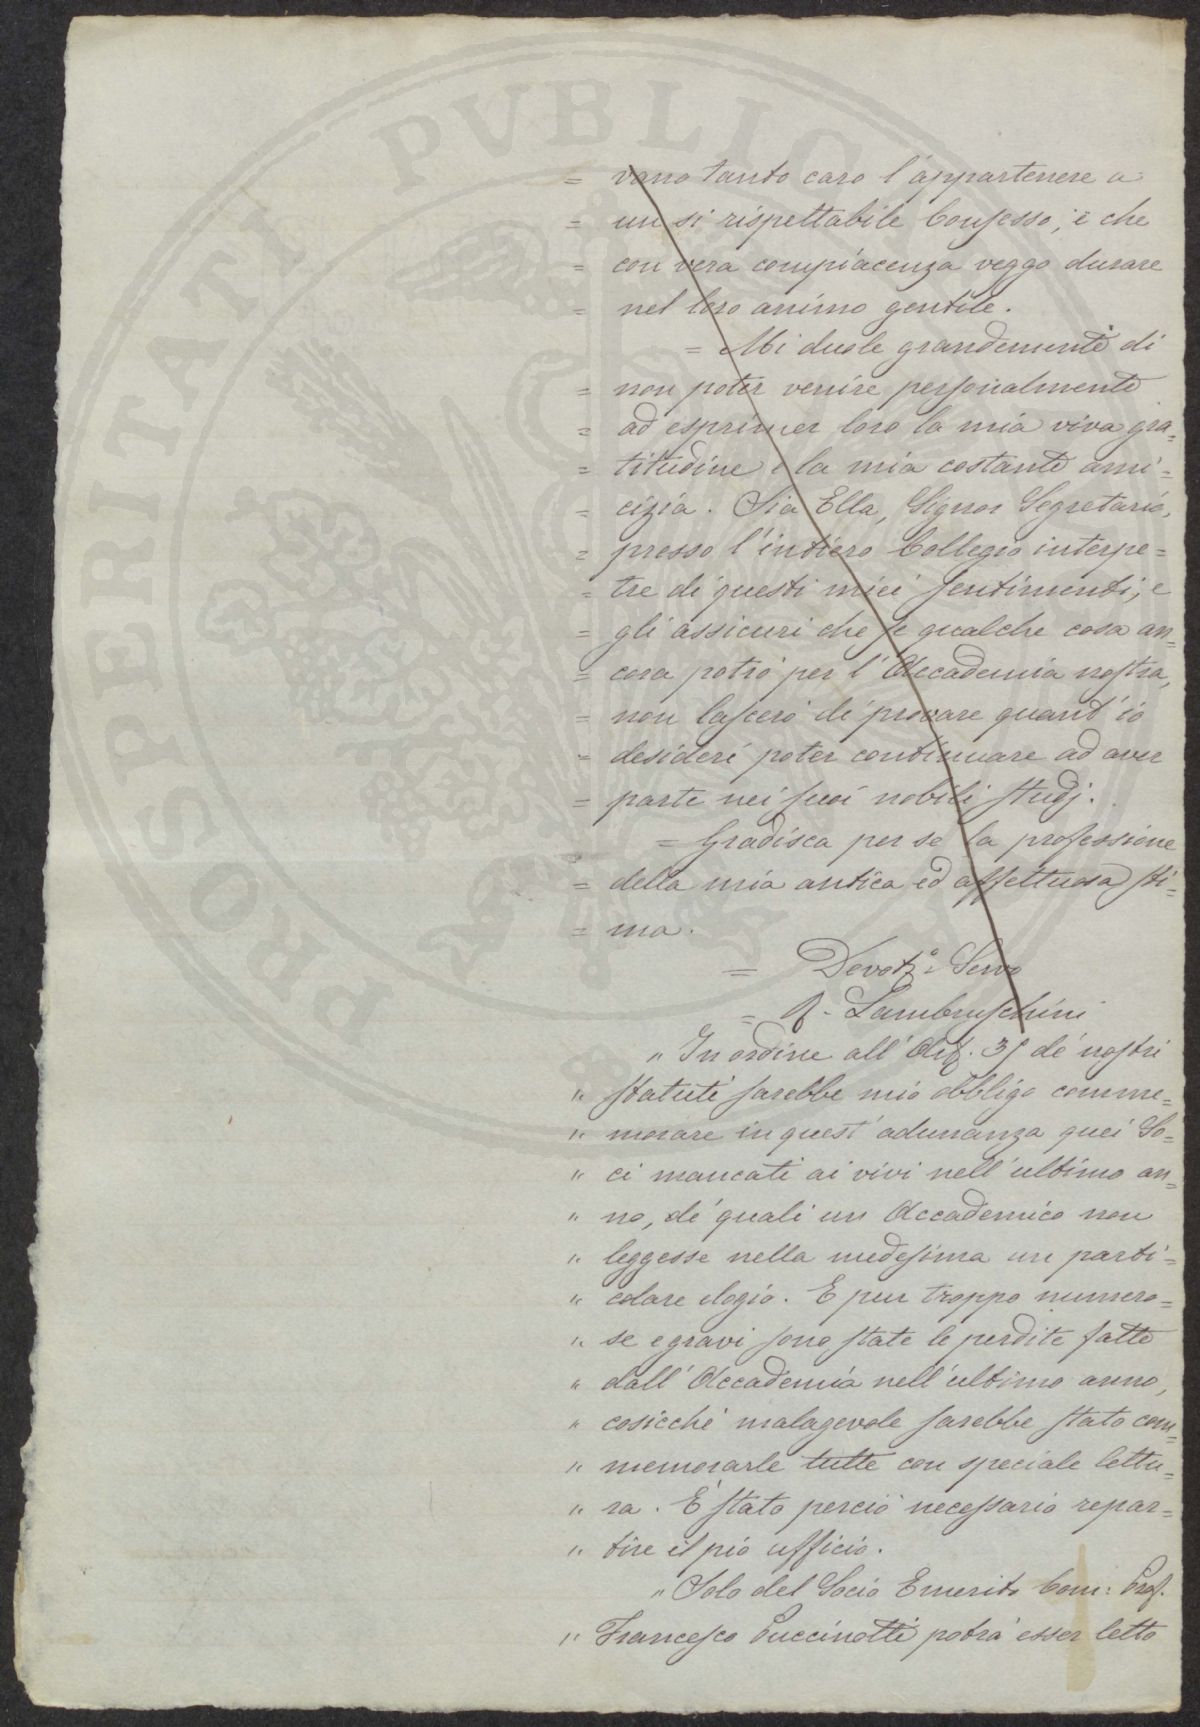 = vano tanto caro l'appartenere a
= un si rispettabile Consesso, e che
= con vera compiacenza veggo durare
= nel loro animo gentile.
= Mi duole grandemente di
= non poter venire personalmente
= ad esprimer loro la mia viva gra=
= titudine e la mia costante ami=
= cizia. Sia Ella, Signor Segretario,
= presso l'intiero Collegio interpe=
= tre di questi miei sentimenti, e
= gli assicuri che se qualche cosa an=
= cora potrò per l'Accademia nostra,
= non lascerò di provare quant'io
= desideri poter continuare ad aver
= parte nei suoi nobili studj.
= Gradisca per se la professione
= della mia antica ed affettuosa sti=
= ma.
= Devot.º Servo
= R. Lambruschini
" In ordine all'Art. 35 de' nostri
" statuti sarebbe mio obbligo comme=
" morare in quest'adunanza quei So=
" ci mancati ai vivi nell'ultimo an=
" no, de' quali un Accademico non
" leggesse nella medesima un parti=
" colare elogio. E pur troppo numero=
" se e gravi sono state le perdite fatte
" dall'Accademia nell'ultimo anno,
" cosicchè malagevole sarebbe stato com=
" memorarle tutte con speciale lettu=
" ra. È stato perciò necessario repar=
" tire il pio ufficio.
" Solo del Socio Emerito Com: Prof.
" Francesco Puccinotti potrà esser letto
PROSPERITATI PVBLICAE